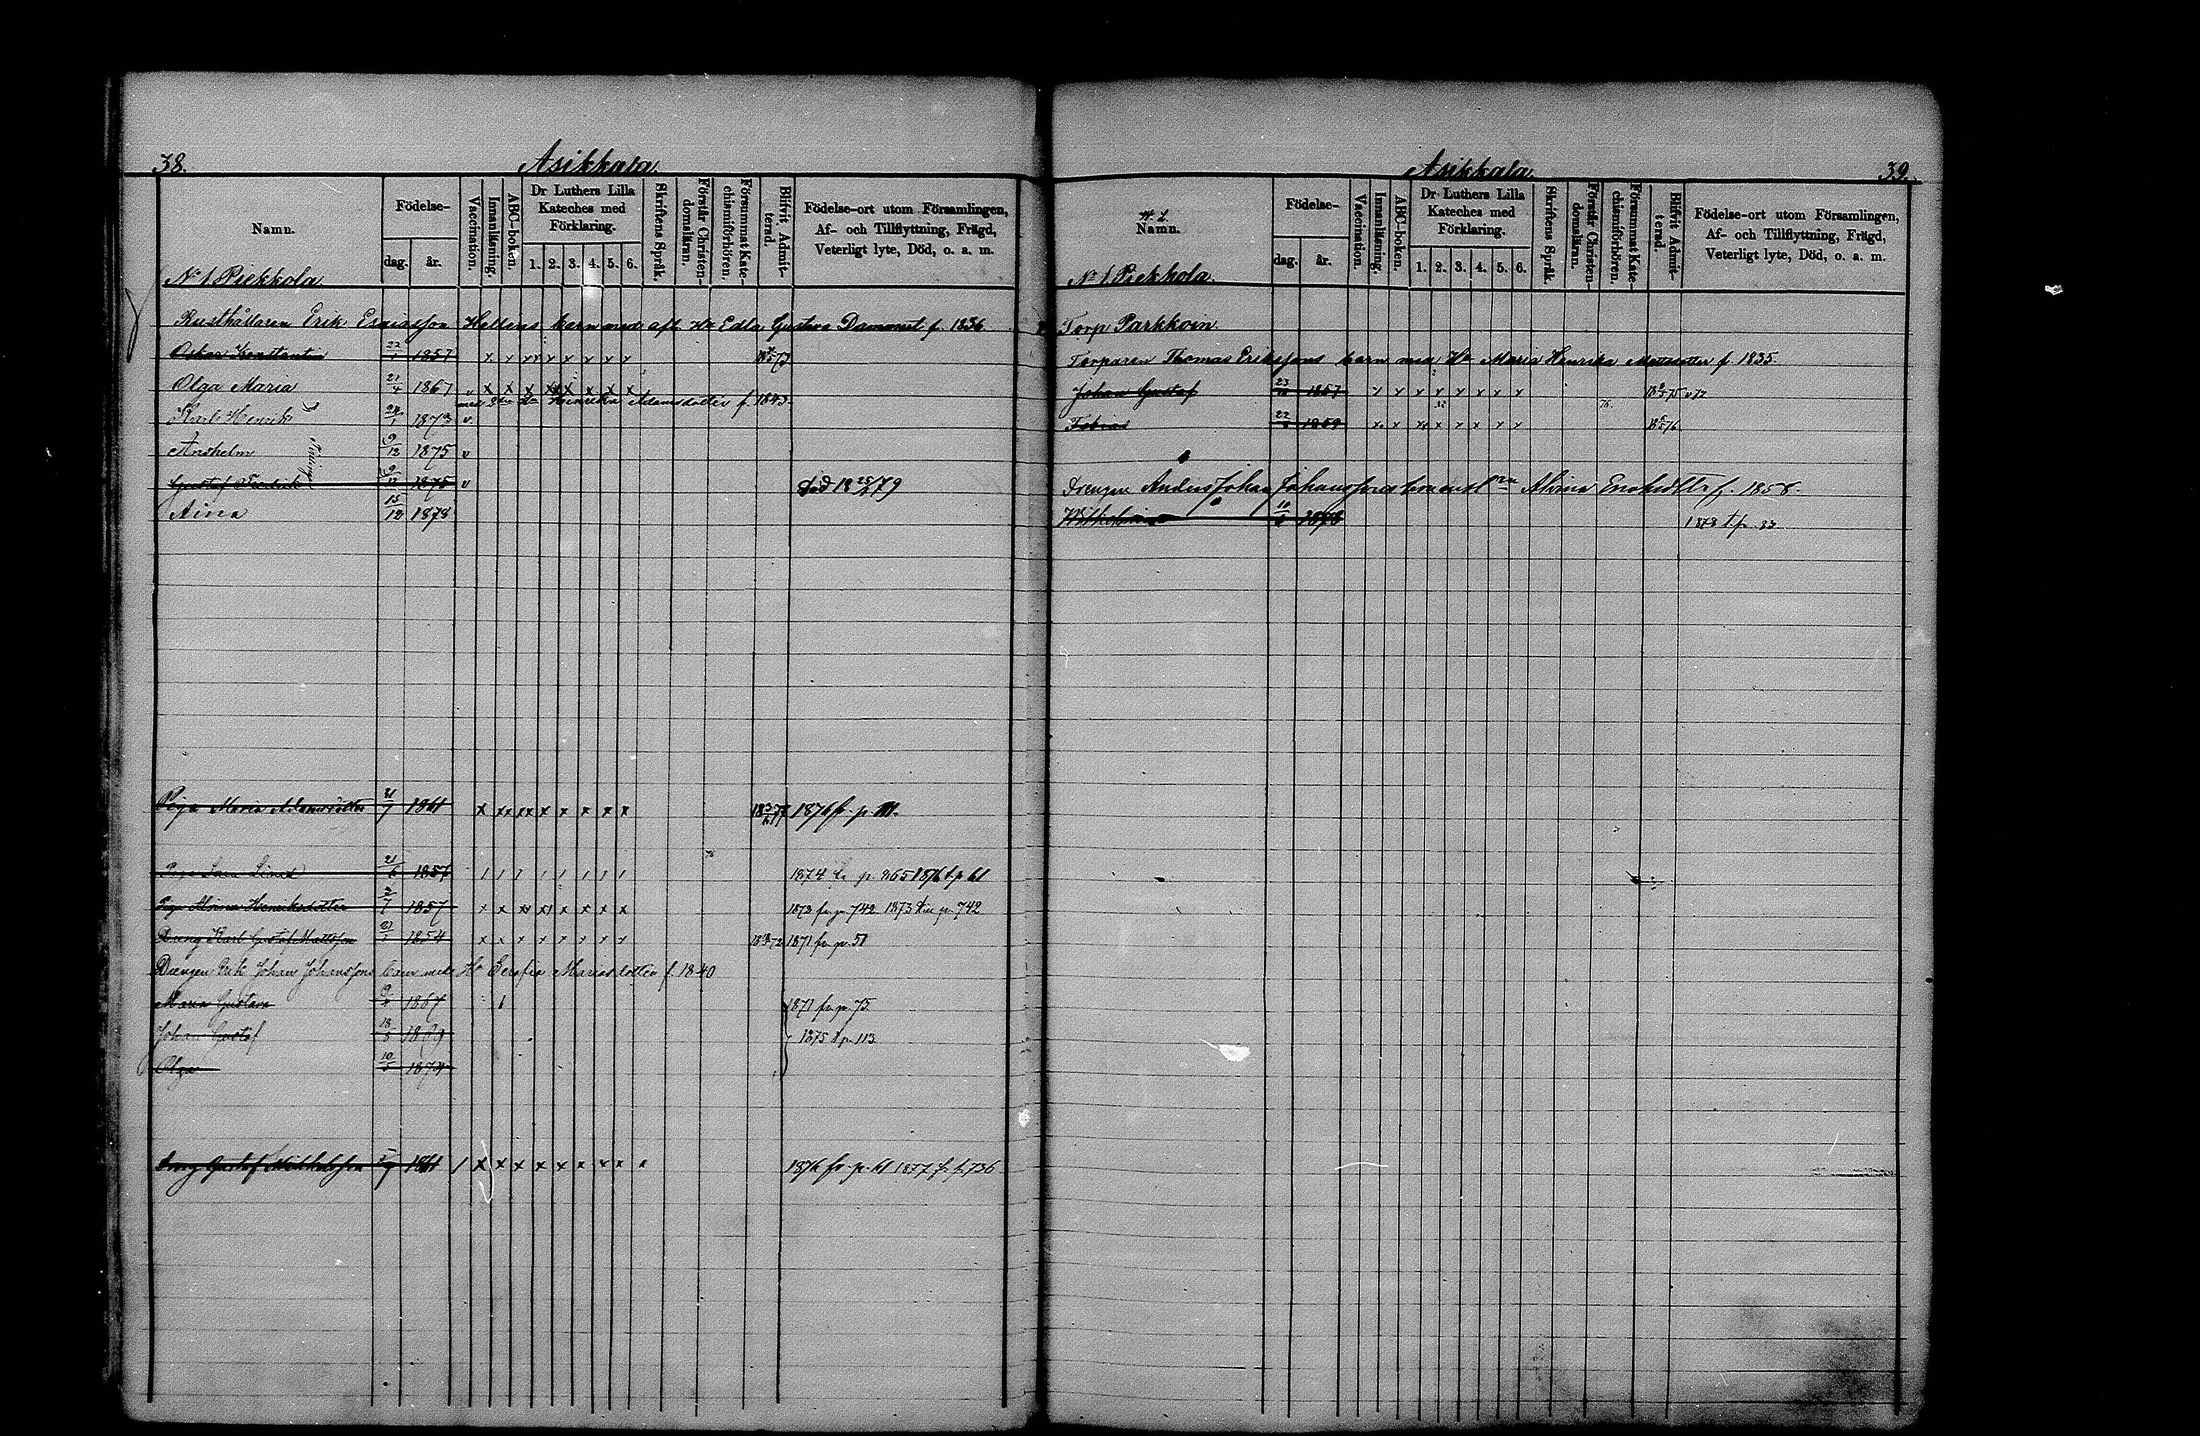 38.
Asikkala.
Namn.
Födelse-
dag. år.
Vaccination.
Innanläsning.
ABC-boken.
Dr Luthers Lilla Kateches med Förklaring.
1. 2. 3. 4. 5. 6.
Skriftens Språk.
Förstår Christen-domsläran.
Försummat Kate-chismiförhören.
Blifvit Admit-terad.
Födelse-ort utom Församlingen,
Af- och Tillflyttning, Frägd,
Veterligt lyte, Död, o. a. m.
No 1. Piekkola.
Rusthållaren Erik Esaiasson Heltens barn med afl. Hu Edla Gustava Dammert f. 1836
Oskar Konstantin 22/1 1857 x x xx x x x x x
Olga Maria 21/4 1867 v x x x xx x x x x
med 2dra Hu Henrika Adamsdotter f. 1843
Karl Henrik 24/1 1873 v
Anshelm 9/12 1875 v
Gustaf Fredrik 9/12 1875 v död 18 25/4 79
Aina 15/12 1878
Piga Maria Adamsdotter 21/7 1861 x xx xx x x x x x 1876 fr. p.
Piga 21/6 1857 1874 fr p. 865 1876 t. p 61
Piga Henriksdotter 2/7 1857 x x xx x x x x x 1872 fr. p. 742 1873 till p. 742
Dreng Karl Gustaf Mattsson 21/1 1854 x x x x x x x x 1871 fr. p. 51
Drengen Erik Johan Johanssons barn med Hu Serafia Mariasdotter f. 1840
Maria Gustava 1867 1871 fr. p. 75
Johan Gustaf 18/8 1869 1875 t. p. 113
Olga 10/5 1874
Dreng Gustaf 1861 x x x x x x x x 1876 fr. p. 61 1877 f. p. 736
Asikkala.
39.
Namn.
Födelse-
dag. år.
Vaccination.
Innanläsning.
ABC-boken.
Dr Luthers Lilla Kateches med Förklaring.
1. 2. 3. 4. 5. 6.
Skriftens Språk.
Förstår Christen-domsläran.
Försummat Kate-chismiförhören.
Blifvit Admit-terad.
Födelse-ort utom Församlingen,
Af- och Tillflyttning, Frägd,
Veterligt lyte, Död, o. a. m.
No 1. Piekkola.
Torp Parkkoin.
Torparen Thomas Erikssons barn med Hu Maria Henrika Mattsdotter f. 1835.
Johan Gustaf 23/10 1857 x x x x x x x x
Tobias 22/ 1859 x x xx x x x x x
Drengen Anders Johan Johanssons barn med Hu Alvina f. 1858.
Wilhelmina 10/ 1878 1878 t. p. 33